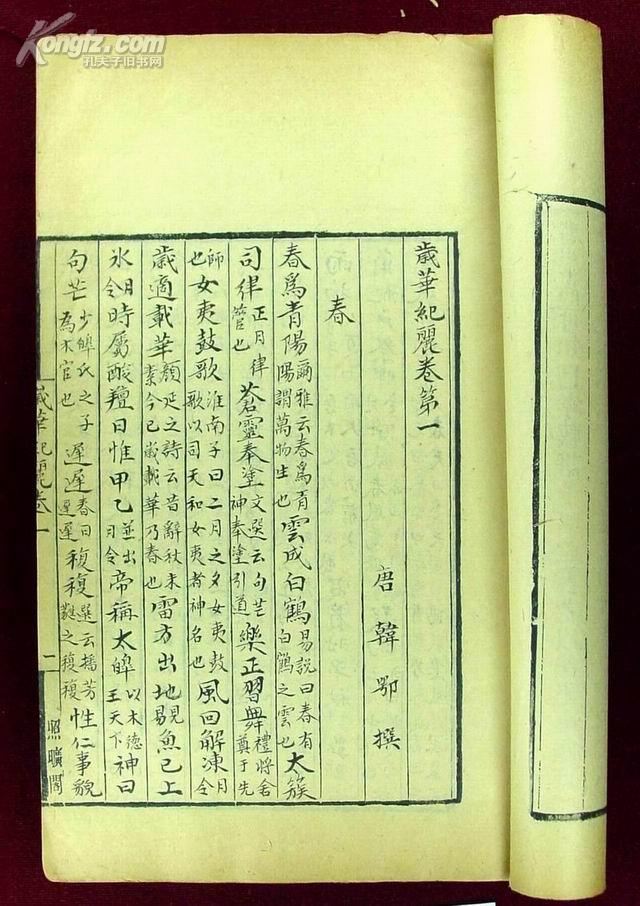 Kongfz.com
孔夫子旧书网
歲華紀麗卷第一
唐韓鄂撰
春
春爲青陽爾雅云春爲青陽謂萬物生也雲成白鶴易說曰春有白鶴之雲也大簇
司律正月律管也蒼靈奉塗文選云句芒神奉塗引道樂正習舞禮將舍奠于先
師也女夷鼓歌淮南子曰二月之夕女夷鼓歌以司天和女夷者神名也風回解凍月令
歲適載華顏延之詩云昔辭秋未素今已歲載華乃春也雷方出地見易魚已上
氷月令時屬酸羶日惟甲乙並出月令帝稱太皞以木德王天下神曰
句芒少皞氏之子爲木官也遲遲春日遲遲馥馥選云播芳蕤之馥馥性仁事貌
歲華紀麗卷一
二
照曠閣